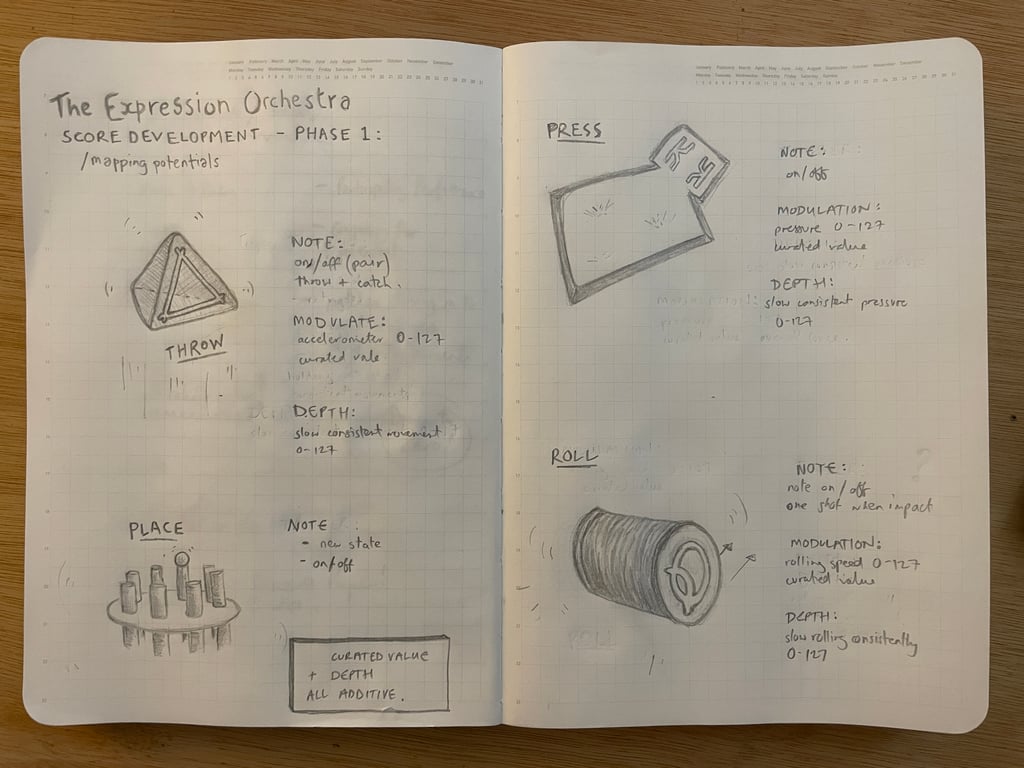 January February March April May June July August September October November December
Monday Tuesday Wednesday Thursday Friday Saturday Sunday
1 2 3 4 5 6 7 8 9 10 11 12 13 14 15 16 17 18 19 20 21 22 23 24 25 26 27 28 29 30 31
The Expression Orchestra
SCORE DEVELOPMENT - PHASE 1:
/mapping potentials
NOTE:
on/off (pair)
throw + catch.
MODULATE:
accelerometer 0-127
curated vale
THROW
DEPTH:
slow consistent movement
0-127
PLACE
NOTE :
- new state
- on/off
CURATED VALUE
+ DEPTH
ALL ADDITIVE.
January February March April May June July August September October November December
Monday Tuesday Wednesday Thursday Friday Saturday Sunday
1 2 3 4 5 6 7 8 9 10 11 12 13 14 15 16 17 18 19 20 21 22 23 24 25 26 27 28 29 30 31
PRESS
NOTE:
on/off
MODULATION:
pressure 0-127
curated value
DEPTH:
slow consistent pressure
0-127
ROLL
NOTE:
note on/off
one shot when impact
MODULATION:
rolling speed 0-127
curated value
DEPTH:
slow rolling consistently
0-127